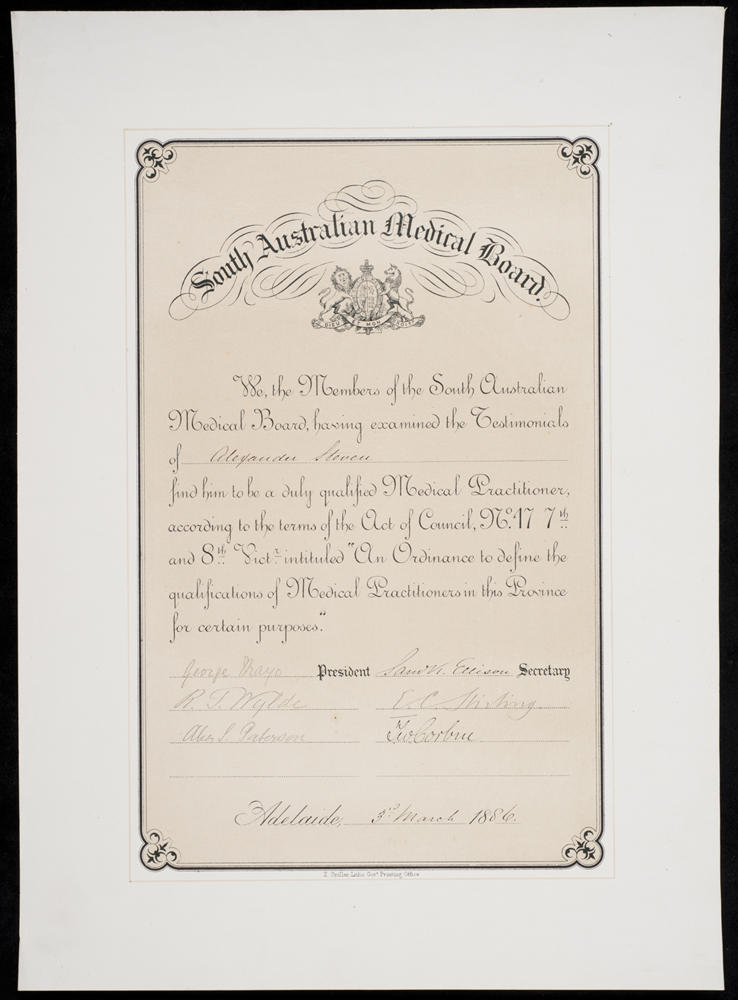 South Australian Medical Board.
DIEU ET MON DROIT
We, the Members of the South Australian
Medical Board, having examined the Testimonials
of Alexander Steven
find him to be a duly qualified Medical Practitioner,
according to the terms of the Act of Council, No. 17 7th
and 8th Victr. intituled "An Ordinance to define the
qualifications of Medical Practitioners in this Province
for certain purposes."
George Mayo President Saml K. Ellison Secretary
R. T. Wylde E. C. Stirling
Alex S. Paterson T. W. Corbin
Adelaide, 3rd March 1886.
Litho. Govt. Printing Office